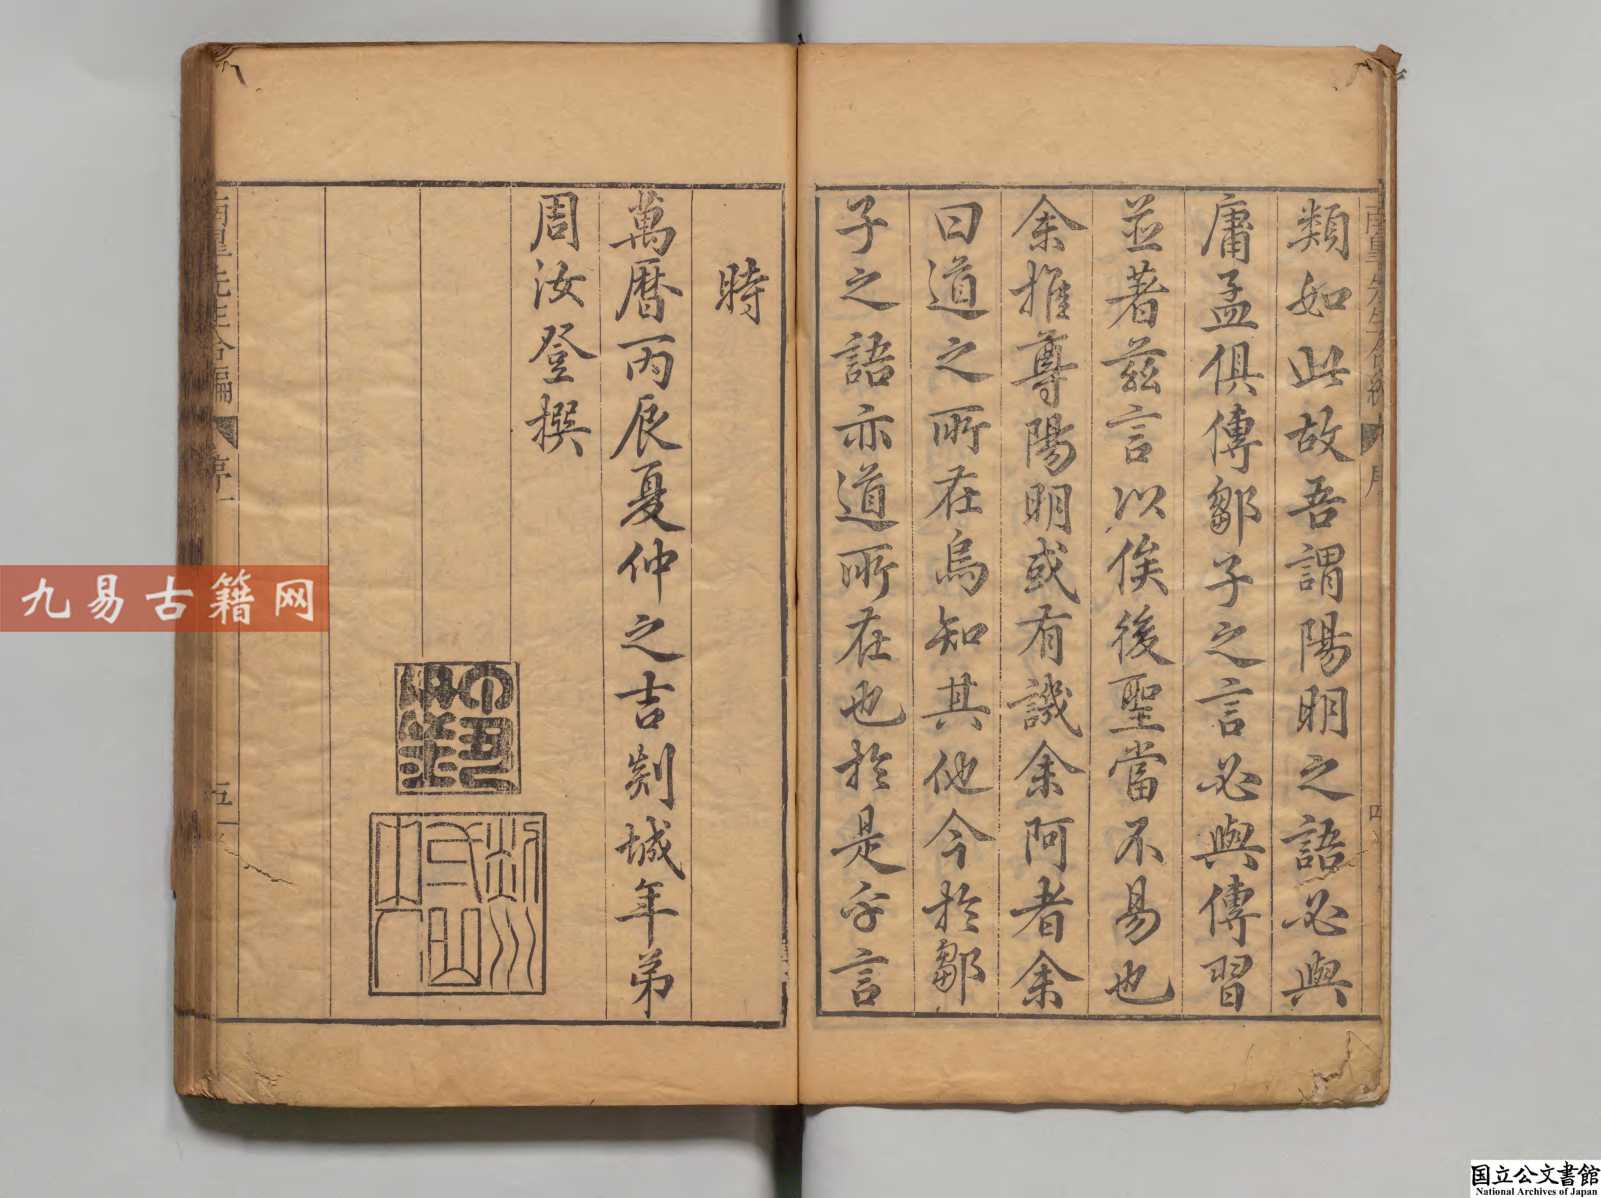 類如此故吾謂陽明之語必與
庸孟俱傳鄒子之言必與傳習
並著茲言以俟後聖當不易也
余推尊陽明或有譏余阿者余
曰道之所在烏知其他今於鄒
子之語亦道所在也於是乎言
時
萬曆丙辰夏仲之吉剡城年弟
周汝登撰
南皐先生合編
序
五
九易古籍网
国立公文書館
National Archives of Japan